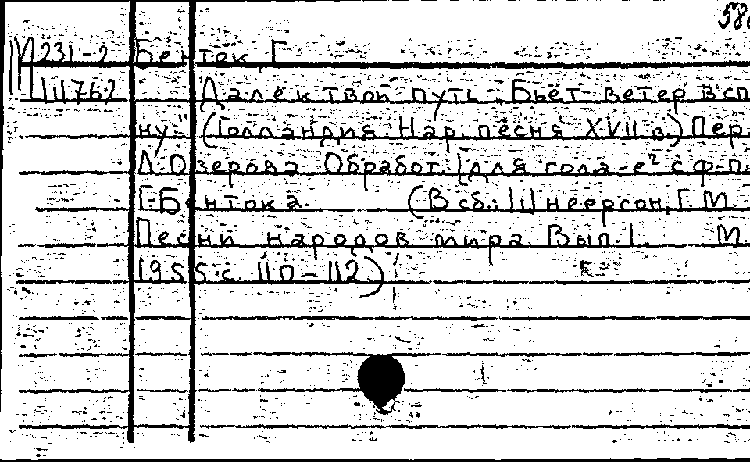 58
М 231-2 Бенток, Г.
Ш 767 Далек твой путь. „Бьёт ветер в сп
ну“ (Голландия. Нар. песня XVII в.) Пер.
Л. Озерова. Обработ. для голо-
Г. Бентока. (В сб.: Шнеерсон, Г. М.
Песни народов мира. Вып. 1. М.
1955 с. 110-112)